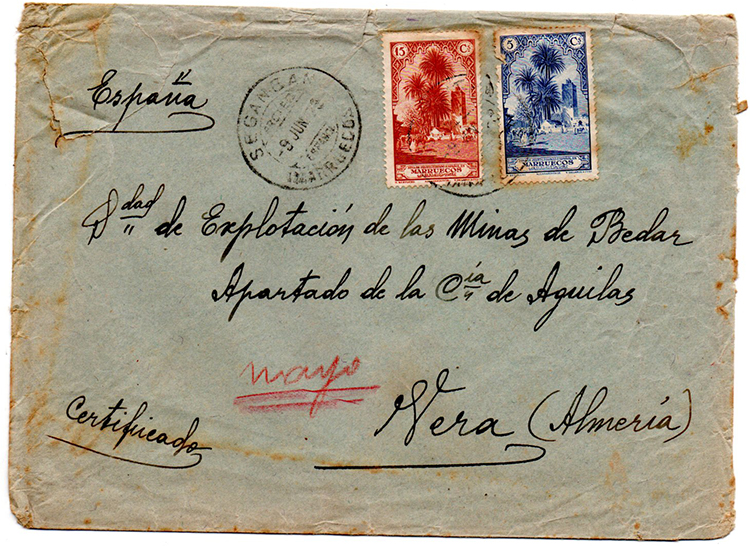 15 Cs
5 Cs
MARRUECOS
MARRUECOS
SEGANGAN
9 JUN
MARRUECOS
España
Sdad de Explotación de las Minas de Bedar
Apartado de la Cía de Aguilas
mayo
Certificado
Vera (Almería)